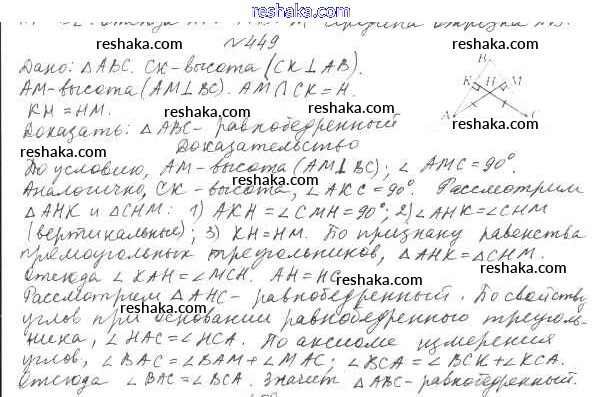 www.reshaka.com
отсюда середина отрезка
reshaka.com reshaka.com
№449
Дано: △ABC. CK-высота (CK⊥AB).
AM-высота (AM⊥BC). AM∩CK=H.
KH=HM.
Доказать: △ABC-равнобедренный
Доказательство
По условию, AM-высота (AM⊥BC); ∠AMC=90°.
Аналогично, CK-высота, ∠AKC=90°. Рассмотрим
△AHK и △CHM: 1) AKH=∠CMH=90°; 2) ∠AHK=∠CHM
(вертикальные); 3) KH=HM. По признаку равенства
прямоугольных треугольников, △AHK=△CHM.
Отсюда ∠KAH=∠MCH. AH=HC
Рассмотрим △AHC-равнобедренный. По свойству
углов при основании равнобедренного треуголь-
ника, ∠HAC=∠HCA. По аксиоме измерения
углов, ∠BAC=∠BAM+∠MAC; ∠BCA=∠BCK+∠KCA.
Отсюда ∠BAC=∠BCA. Значит △ABC-равнобедренный.
B
K H M
A C
reshaka.com
reshaka.com
reshaka.com
reshaka.com
reshaka.com
reshaka.com
reshaka.com
reshaka.com
reshaka.com
reshaka.com
reshaka.com
reshaka.com